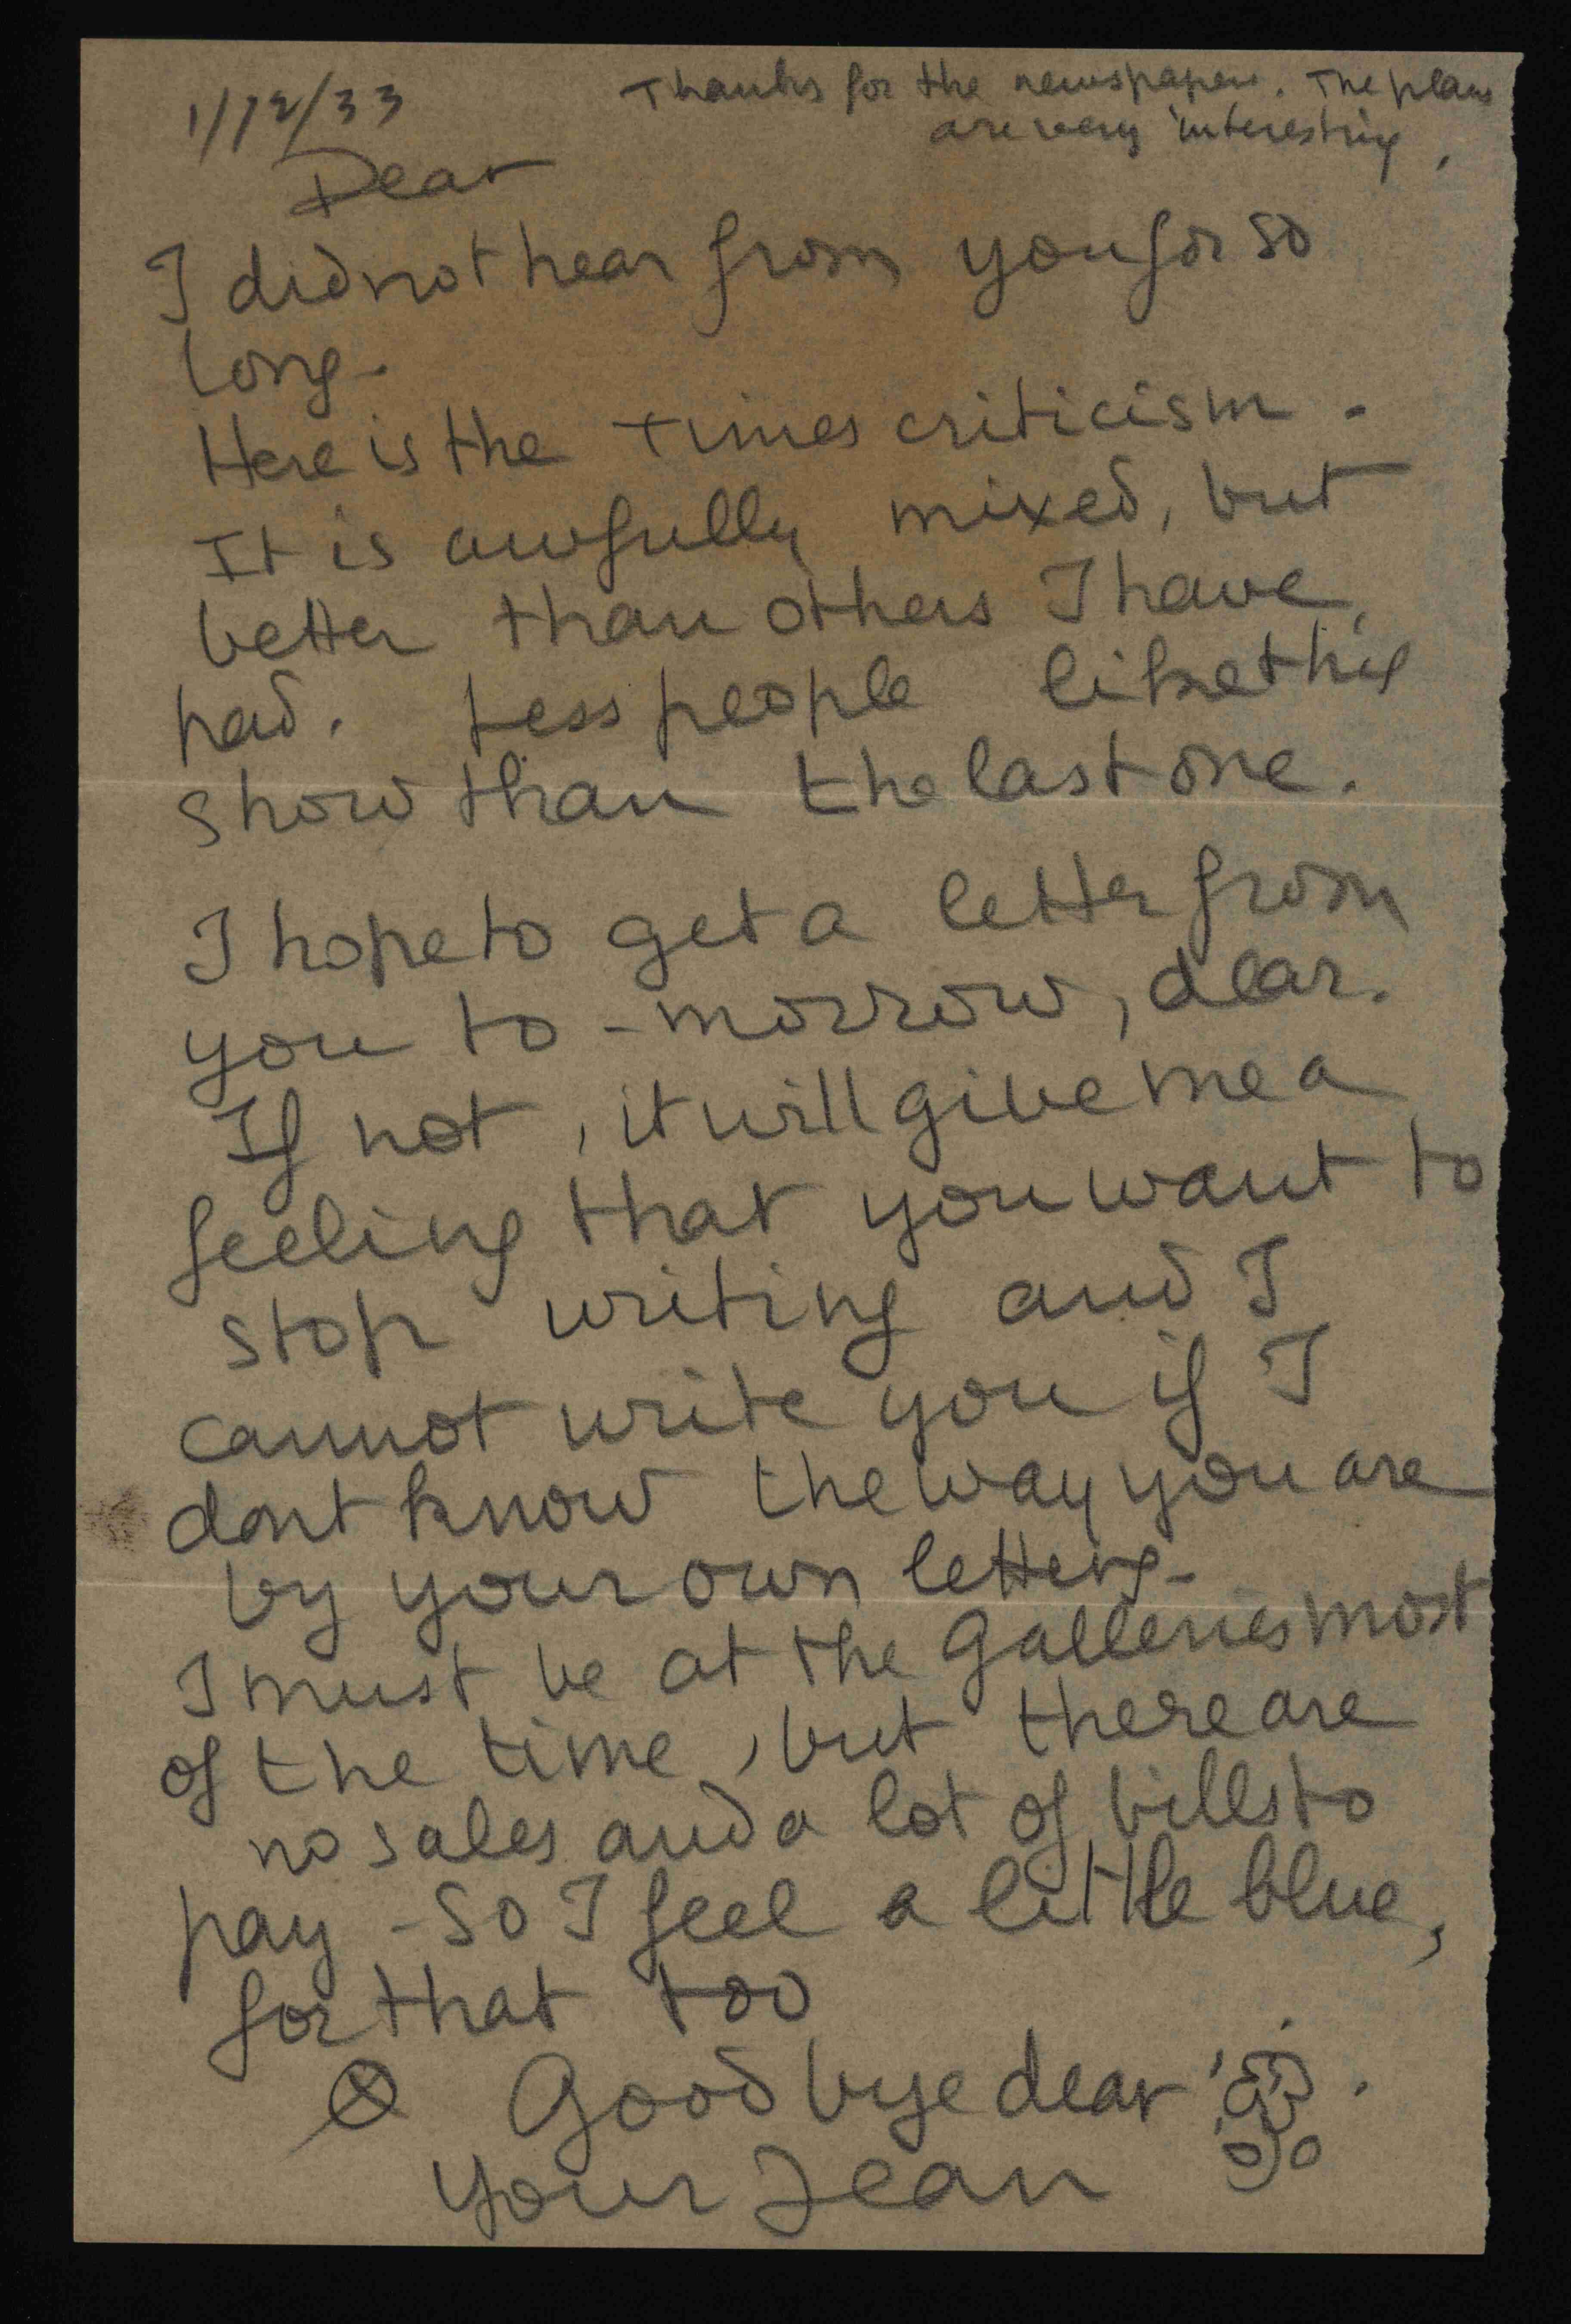 1/12/33
Thanks for the newspapers. The plans
are very interesting.
Dear
I did not hear from you for so
long -
Here is the Times criticism -
It is awfully mixed, but
better than others I have
had. Less people like this
show than the last one.
I hope to get a letter from
you to-morrow, dear.
If not, it will give me a
feeling that you want to
stop writing and I
cannot write you if I
dont know the way you are
by your own letters -
I must be at the Galleries most
of the time, but there are
no sales and a lot of bills to
pay - So I feel a little blue,
for that too
Good bye dear
Your Jean